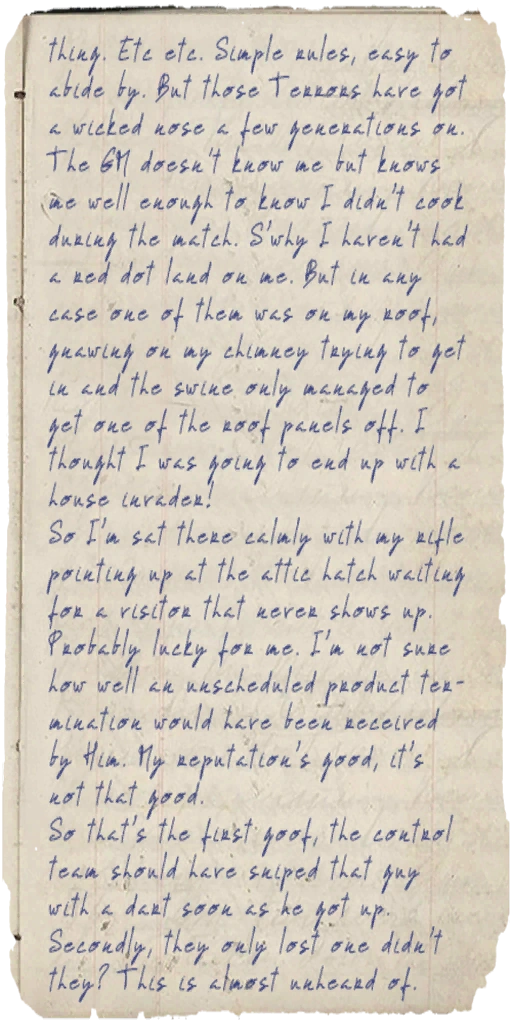 thing. Etc etc. Simple rules, easy to
abide by. But those Terrors have got
a wicked nose a few generations on.
The GM doesn't know me but knows
me well enough to know I didn't cook
during the match. S'why I haven't had
a red dot land on me. But in any
case one of them was on my roof,
gnawing on my chimney trying to get
in and the swine only managed to
get one of the roof panels off. I
thought I was going to end up with a
house invader!
So I'm sat there calmly with my rifle
pointing up at the attic hatch waiting
for a visitor that never shows up.
Probably lucky for me. I'm not sure
how well an unscheduled product ter-
mination would have been received
by Him. My reputation's good, it's
not that good.
So that's the first goof, the control
team should have sniped that guy
with a dart soon as he got up.
Secondly, they only lost one didn't
they? This is almost unheard of.